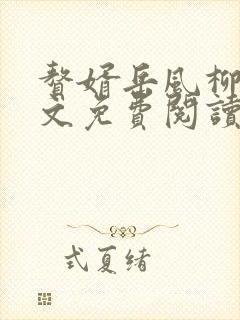 贅婿岳風柳
文免費閱讀
式夏绪